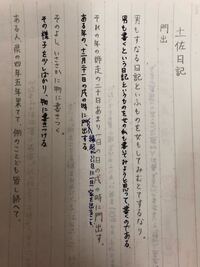 土佐日記
門出
男もすなる日記といふものを女もしてみむとてするなり。
男も書くという日記というものを女の私も書いてみようと思って書くのである。
それの年の師走の二十日あまり一日の日の戌の時に門出す。
ある年の、十二月二十一日の戌の時に門出する。
そのよし、いささかに物に書きつく。
その様子を少しばかり、物に書きつける。
ある人、県の四年五年果てて、例のことども皆し終へて、